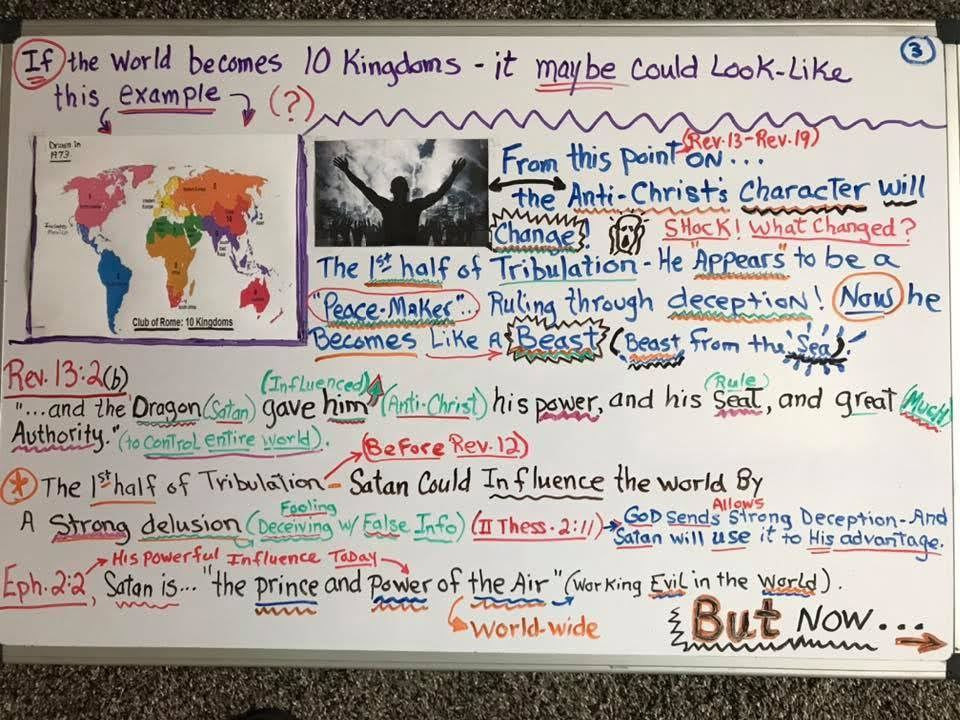 ③
If the World becomes 10 Kingdoms - it maybe Could Look-Like
this example → (?)
Drawn in
1973
Club of Rome: 10 Kingdoms
(Rev.13-Rev.19)
From this point ON...
the Anti-Christ's Character will
Change! SHOCK! What Changed?
The 1st half of Tribulation - He "Appears" to be a
"Peace-Maker".. Ruling through deception! Now he
Becomes Like A → Beast (Beast from the Sea).
Rev. 13:2(b)
(Influenced) (Rule)
"...and the Dragon (Satan) gave him (Anti-Christ) his power, and his Seat, and great (Much)
Authority." (to control entire world).
(Before Rev. 12)
* The 1st half of Tribulation - Satan Could Influence the world By
Fooling Allows
A Strong delusion (Deceiving w/ False Info) (II Thess. 2:11) → GOD Sends Strong Deception-And
Satan will use it to His advantage.
His Powerful Influence Today
Eph. 2:2, Satan is... "the prince and Power of the Air" (Working Evil in the World).
World-wide
But Now... →